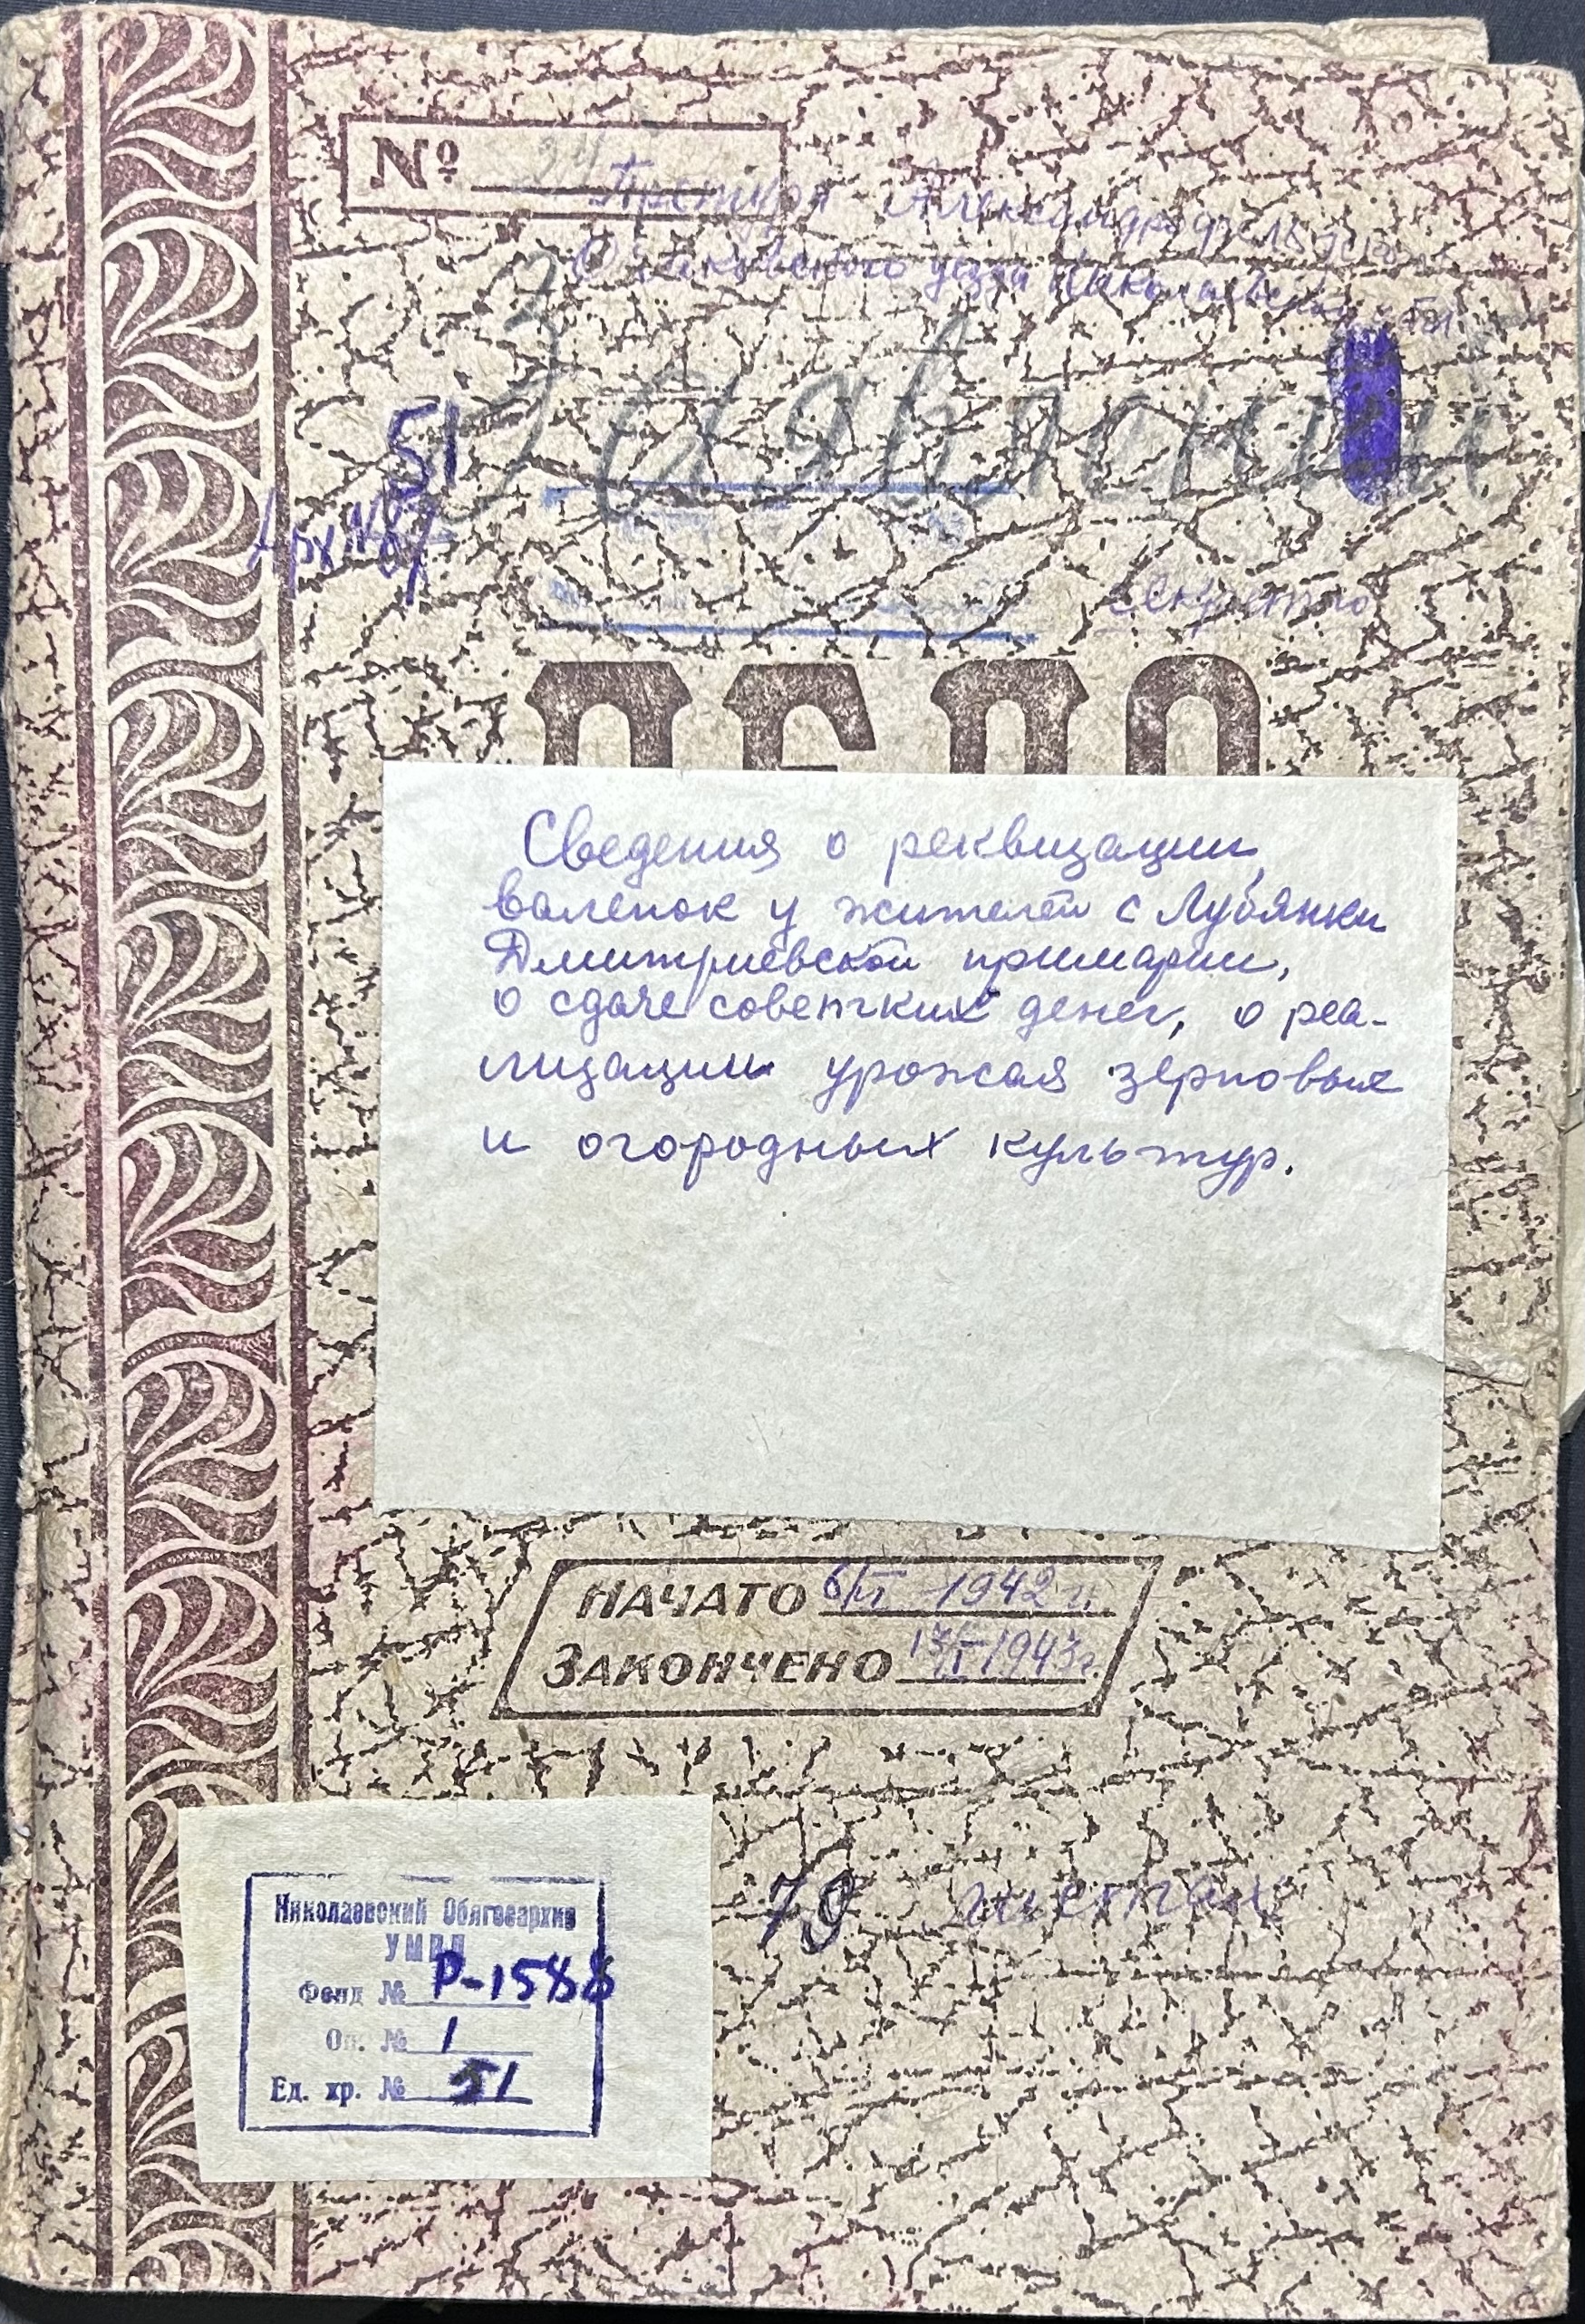 № 24
Претура Александрфельдская
Очаковского уезда Николаевской обл
51
Арх № 87
секретно
ДЕЛО
Сведения о реквизации
валенок у жителей с Лубянки
Дмитриевской примарии,
о сдаче советских денег, о реа-
лизации урожая зерновых
и огородных культур.
НАЧАТО 6/VI 1942 г.
ЗАКОНЧЕНО 1943 г.
79 листах
Николаевский Облгосархив
УМВД
Фонд № Р-1588
Оп. № 1
Ед. хр. № 51